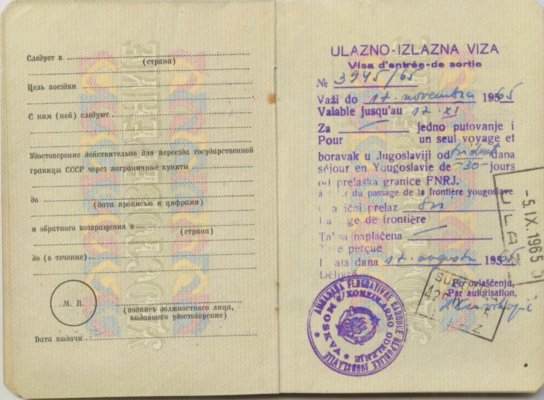 Следует в
(страна)
Цель поездки
С ним (ней) следуют
Удостоверение действительно для переезда государственной
границы СССР через пограничные пункты
до
(дата прописью и цифрами)
и обратного возвращения в
(страна)
до (в течение)
М. П.
(подпись должностного лица,
выдавшего удостоверение)
Дата выдачи
ULAZNO-IZLAZNA VIZA
Visa d'entrée-de sortie
№ 3945/65
Važi do 17. novembra 1965
Valable jusqu'au 17 XI
Za jedno putovanje i
Pour un seul voyage et
boravak u Jugoslaviji od trideset dana
séjour en Yougoslavie de -30- jours
od prelaska granice FNRJ.
du passage de la frontière yougoslave
prelaz svi
de frontière
Taksa naplaćena
perçue
dana 17. avgusta 195
Délivré
Po ovlašćenju,
Par autorisation,
AMBASADA FEDERATIVNE NARODNE REPUBLIKE JUGOSLAVIJE
KONZULARNO ODELJENJE
MOSKVA
-5.IX.1965
ULAZ